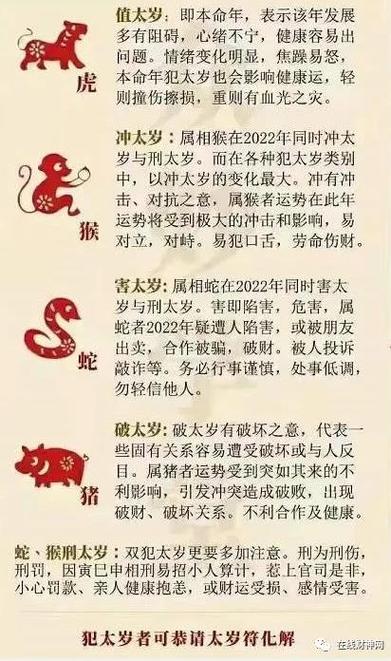 值太岁：即本命年，表示该年发展
多有阻碍，心绪不宁，健康容易出
问题。情绪变化明显，焦躁易怒，
本命年犯太岁也会影响健康运，轻
则撞伤擦损，重则有血光之灾。
虎
冲太岁：属相猴在2022年同时冲太
岁与刑太岁。而在各种犯太岁类别
中，以冲太岁的变化最大。冲有冲
击、对抗之意，属猴者运势在此年
运势将受到极大的冲击和影响，易
对立，对峙。易犯口舌，劳命伤财。
猴
害太岁：属相蛇在2022年同时害太
岁与刑太岁。害即陷害，危害，属
蛇者2022年疑遭人陷害，或被朋友
出卖，合作被骗，破财。被人投诉
敲诈等。务必行事谨慎，处事低调，
勿轻信他人。
蛇
破太岁：破太岁有破坏之意，代表一
些固有关系容易遭受破坏或与人反
目。属猪者运势受到突如其来的不
利影响，引发冲突造成破败，出现
破财、破坏关系。不利合作及健康。
猪
蛇、猴刑太岁：双犯太岁更要多加注意。刑为刑伤，
刑罚，因寅巳申相刑易招小人算计，惹上官司是非，
小心罚款、亲人健康抱恙，或财运受损、感情受害。
犯太岁者可恭请太岁符化解
在线财神网